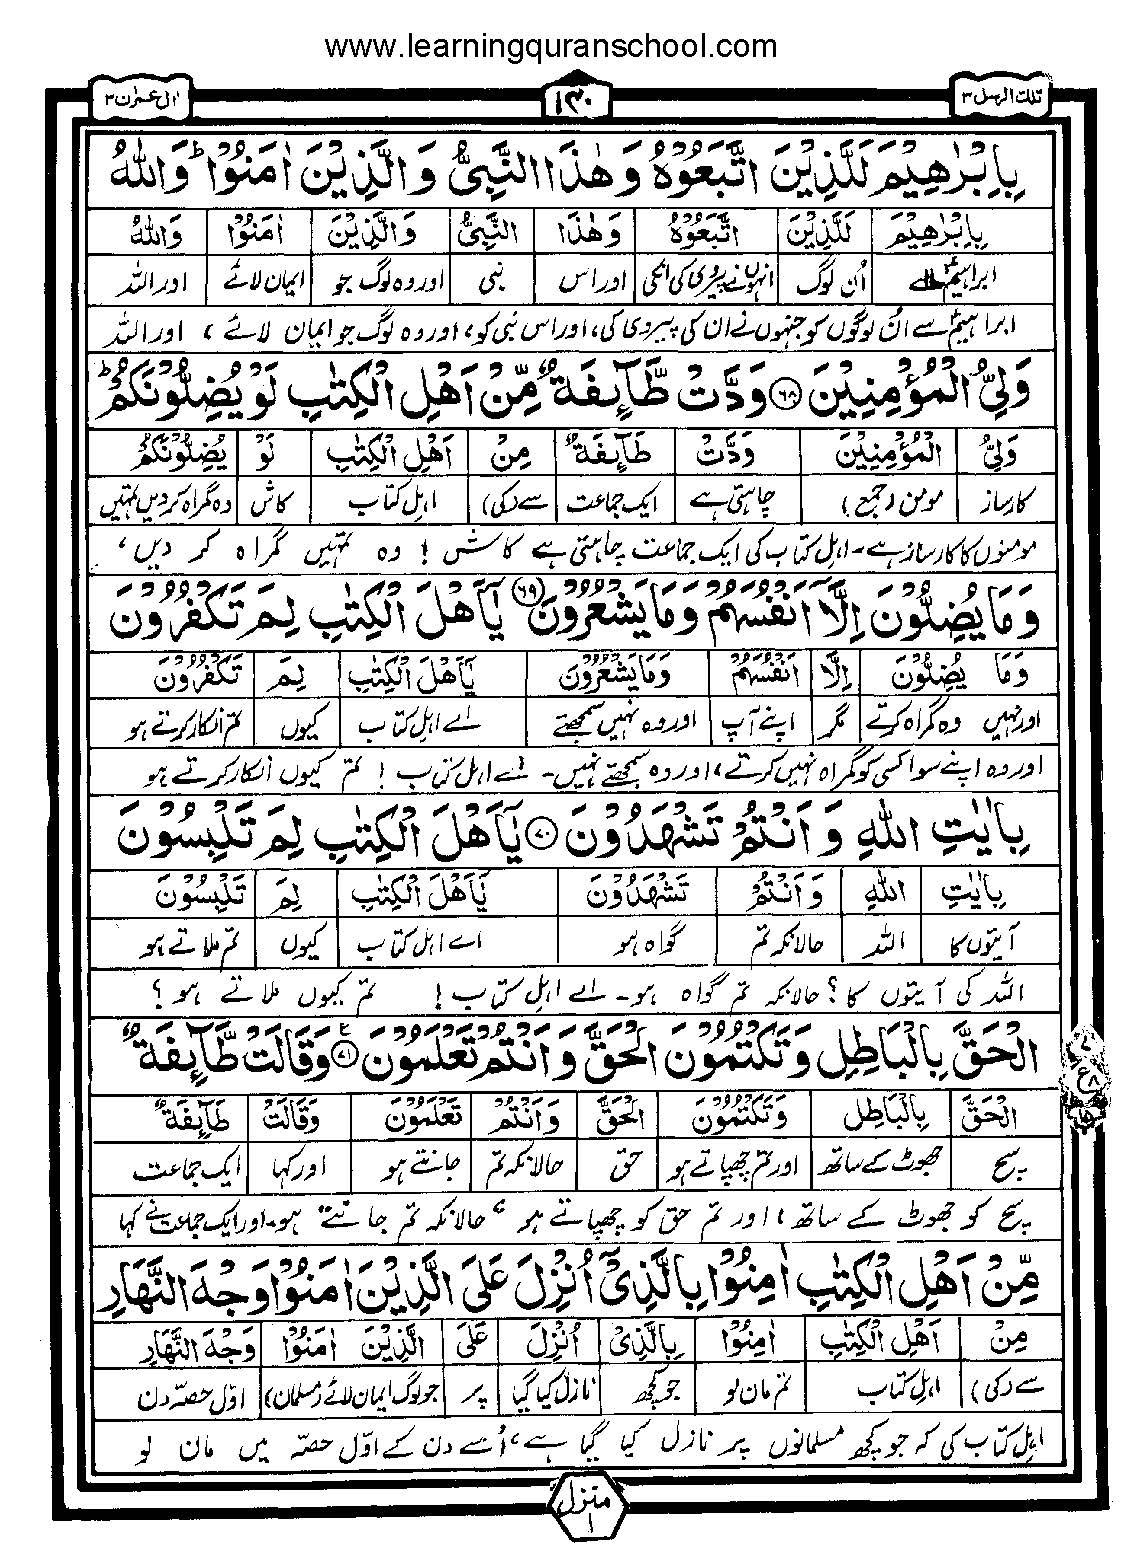 www.learningquranschool.com
تلك الرسل ۳
۱۳۰
ال عمرٰن ۳
بِاِبْرٰهِيْمَ لَلَّذِيْنَ اتَّبَعُوْهُ وَهٰذَا النَّبِىُّ وَالَّذِيْنَ اٰمَنُوْا ؕ وَاللّٰهُ
بِاِبْرٰهِيْمَ لَلَّذِيْنَ اتَّبَعُوْهُ وَهٰذَا النَّبِىُّ وَالَّذِيْنَ اٰمَنُوْا وَاللّٰهُ
ابراہیمؑ سے اُن لوگ انہوں نے پیروی کی انکی اور اس نبی اور وہ لوگ جو ایمان لائے اور اللہ
ابراہیمؑ سے اُن لوگوں کو جنہوں نے ان کی پیروی کی، اور اس نبی کو، اور وہ لوگ جو ایمان لائے، اور اللہ
وَلِىُّ الْمُؤْمِنِيْنَ ۶۸ وَدَّتْ طَّآئِفَةٌ مِّنْ اَهْلِ الْكِتٰبِ لَوْ يُضِلُّوْنَكُمْ ؕ
وَلِىُّ الْمُؤْمِنِيْنَ وَدَّتْ طَآئِفَةٌ مِنْ اَهْلِ الْكِتٰبِ لَوْ يُضِلُّوْنَكُمْ
کارساز مومن (جمع) چاہتی ہے ایک جماعت سے (کی) اہل کتاب کاش وہ گمراہ کردیں تمہیں
مومنوں کا کارساز ہے۔ اہل کتاب کی ایک جماعت چاہتی ہے کاش! وہ تمہیں گمراہ کر دیں،
وَمَا يُضِلُّوْنَ اِلَّاۤ اَنْفُسَهُمْ وَمَا يَشْعُرُوْنَ ۶۹ يٰۤاَهْلَ الْكِتٰبِ لِمَ تَكْفُرُوْنَ
وَمَا يُضِلُّوْنَ اِلَّا اَنْفُسَهُمْ وَمَا يَشْعُرُوْنَ يٰۤاَهْلَ الْكِتٰبِ لِمَ تَكْفُرُوْنَ
اور نہیں وہ گمراہ کرتے مگر اپنے آپ اور وہ نہیں سمجھتے اے اہل کتاب کیوں تم انکار کرتے ہو
اور وہ اپنے سوا کسی کو گمراہ نہیں کرتے، اور وہ سمجھتے نہیں۔ اے اہل کتاب! تم کیوں انکار کرتے ہو
بِاٰيٰتِ اللّٰهِ وَاَنْتُمْ تَشْهَدُوْنَ ۷۰ يٰۤاَهْلَ الْكِتٰبِ لِمَ تَلْبِسُوْنَ
بِاٰيٰتِ اللّٰهِ وَاَنْتُمْ تَشْهَدُوْنَ يٰۤاَهْلَ الْكِتٰبِ لِمَ تَلْبِسُوْنَ
آیتوں کا اللہ حالانکہ تم گواہ ہو اے اہل کتاب کیوں تم ملاتے ہو
اللہ کی آیتوں کا؟ حالانکہ تم گواہ ہو۔ اے اہل کتاب! تم کیوں ملاتے ہو؟
الْحَقَّ بِالْبَاطِلِ وَتَكْتُمُوْنَ الْحَقَّ وَاَنْتُمْ تَعْلَمُوْنَ ۷۱ ع وَقَالَتْ طَّآئِفَةٌ
الْحَقَّ بِالْبَاطِلِ وَتَكْتُمُوْنَ الْحَقَّ وَاَنْتُمْ تَعْلَمُوْنَ وَقَالَتْ طَآئِفَةٌ
سچ جھوٹ کے ساتھ اور تم چھپاتے ہو حق حالانکہ تم جانتے ہو اور کہا ایک جماعت
سچ کو جھوٹ کے ساتھ، اور تم حق کو چھپاتے ہو، حالانکہ تم جانتے ہو۔ اور ایک جماعت نے کہا
مِّنْ اَهْلِ الْكِتٰبِ اٰمِنُوْا بِالَّذِىْۤ اُنْزِلَ عَلَى الَّذِيْنَ اٰمَنُوْا وَجْهَ النَّهَارِ
مِنْ اَهْلِ الْكِتٰبِ اٰمِنُوْا بِالَّذِىْ اُنْزِلَ عَلَى الَّذِيْنَ اٰمَنُوْا وَجْهَ النَّهَارِ
سے (کی) اہل کتاب تم مان لو جو کچھ نازل کیا گیا پر جو لوگ ایمان لائے (مسلمان) اوّل حصّہ دن
اہل کتاب کی کہ جو کچھ مسلمانوں پر نازل کیا گیا ہے، اُسے دن کے اوّل حصّہ میں مان لو
منزل ۱